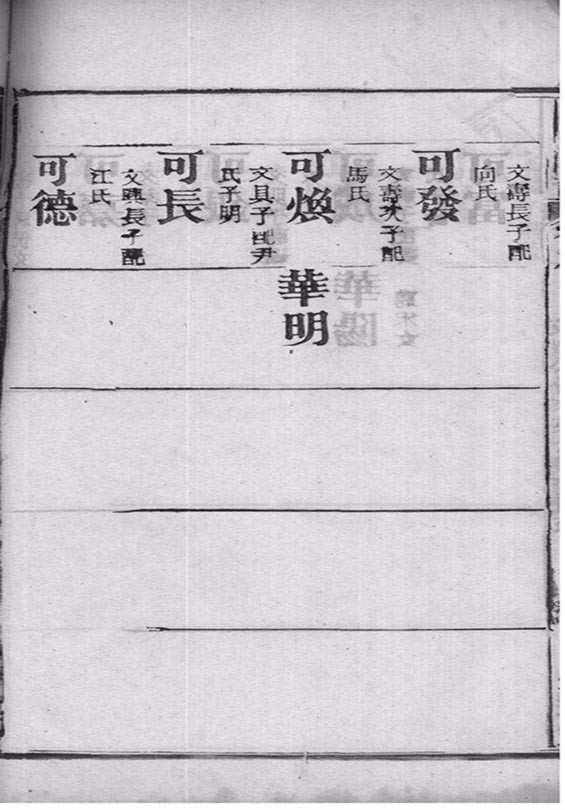 文壽長子配
向氏
可發
文壽次子配
馬氏
可煥
華明
文具子配尹
氏子明
可長
文興長子配
江氏
可德